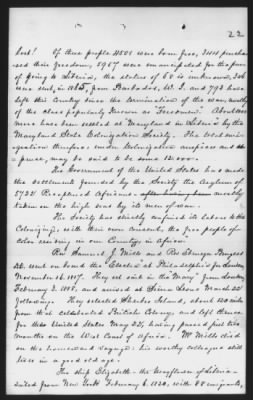 22
port! Of these people 4501 were born free, 344 purcha
sed their freedom, 5957 were emancipated for the purpose
of going to Liberia, the status of 68 is unknown, 346
were sent, in 1865, from Barbados, W. I. and 793 have
left this Country since the termination of the war, mostly
of the class popularly known as "Freedmen". About 1000
more have been settled at Maryland in Liberia by the
Maryland State Colonization Society. The total emi
gration therefore, under Colonization auspices and ex
pense, may be said to be some 12.000.
The Government of the United States has made
the settlement founded by the Society the Asylum of
5722 Recaptured Africans mostly
taken on the high seas by its men of war.
The Society has strictly confined its labors to the
Colonizing, with their own consent, the free people of
color residing in our Country, in Africa.
Rev Samuel J. Mills and Rev Ebenezer Burgess
went on board the "Electra" at Philadelphia for London
November 16. 1817. They set sail in the "Mary" from London
February 2. 1818, and arrived at Sierra Leone March 22
following. They selected Sherbro Island, about 120 miles
from that celebrated British Colony, and left thence
for the United States May 22, having passed just two
months on the West Coast of Africa. Mr Mills died
on the homeward voyage: his worthy colleague still
lives in a good old age.
The ship Elizabeth the Mayflower of Liberia
sailed from New York February 6. 1820, with 88 emigrants,